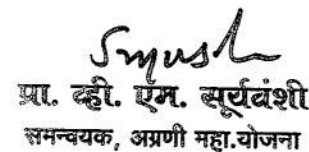 प्रा. व्ही. एम. सूर्यवंशी
समन्वयक, अग्रणी महा.योजना